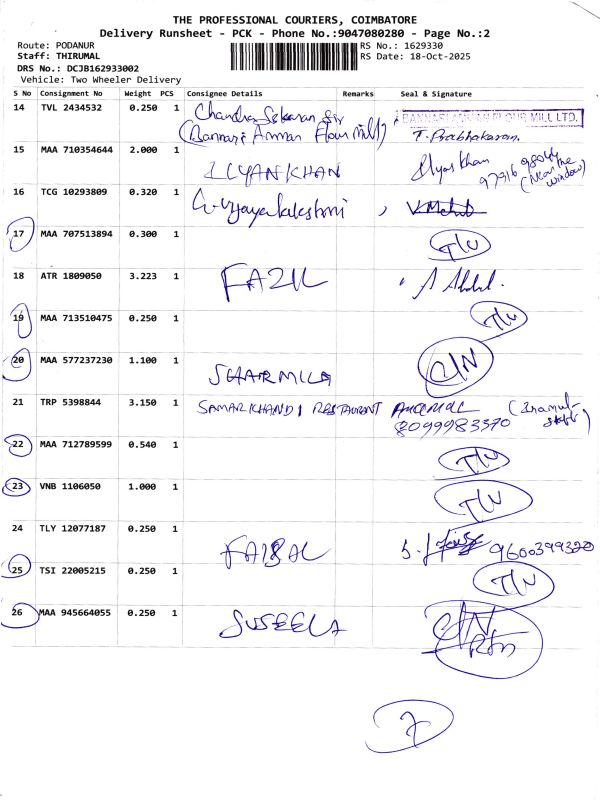 THE PROFESSIONAL COURIERS, COIMBATORE
Delivery Runsheet - PCK - Phone No.:9047080280 - Page No.:2
Route: PODANUR
Staff: THIRUMAL
DRS No.: DCJB162933002
Vehicle: Two Wheeler Delivery
RS No.: 1629330
RS Date: 18-Oct-2025
S No Consignment No Weight PCS Consignee Details Remarks Seal & Signature
14 TVL 2434532 0.250 1 Chandra Sekaran Sir BANNARI AMMAN FLOUR MILL LTD.
(Bannari Amman Flour mill) T. Prabhakaran.
15 MAA 710354644 2.000 1 ILLYANKHAN Ilyas Khan (Near the window)
16 TCG 10293809 0.320 1 G. Vijayalakshmi
17 MAA 707513894 0.300 1 T/U
18 ATR 1809050 3.223 1 FAZIL A Abdul.
19 MAA 713510475 0.250 1 T/U
20 MAA 577237230 1.100 1 SHARMILA
21 TRP 5398844 3.150 1 SAMARKHANDI RESTAURANT
8099983370
22 MAA 712789599 0.540 1 T/U
23 VNB 1106050 1.000 1 T/U
24 TLY 12077187 0.250 1 FAISAL 9600399320
25 TSI 22005215 0.250 1 T/U
26 MAA 945664055 0.250 1 SUSEELA
7